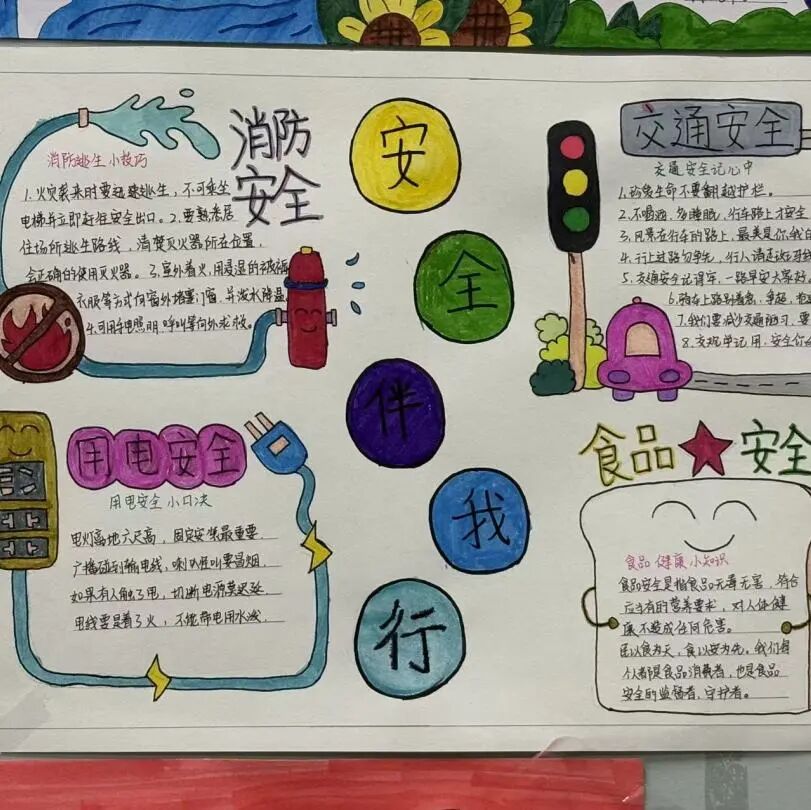 消防
安全
消防逃生小技巧
1.火灾袭来时要迅速逃生，不可乘坐
电梯并立即赶往安全出口。2.要熟悉居
住场所逃生路线，清楚灭火器所在位置，
会正确的使用灭火器。3.室外着火，用浸湿的被褥
衣服等 窗外堵塞门窗，并泼水降温。
4.可用手电照明，呼叫等向外求救。
安
全
伴
我
行
交通安全
交通安全记心中
1.珍爱生命不要翻越护栏。
2.不喝酒，多睡眠，行车路上才安全
3.风景在行车的路上，最美是你我的
4.行上过路勿争先，行人请走斑马线
5.交通安全记得牢，一路平安大家好
6.骑车上路别着急
7.我们要减少交通陋习，要
8.文规牢记用，安全你
用电安全
用电安全小口决
电灯离地六尺高，固定安装最重要.
广播碰到输电线，喇叭怪叫要冒烟.
如果有人触了电，切断电源莫迟疑.
电线要是着了火，不能带电用水泼.
食品★安全
食品健康小知识
食品安全是指食品无毒无害，符合
应当有的营养要求，对人体健
康不造成任何危害。
民以食为天，食以安为先。我们每
个人都是食品消费者，也是食品
安全的监督者，守护者。